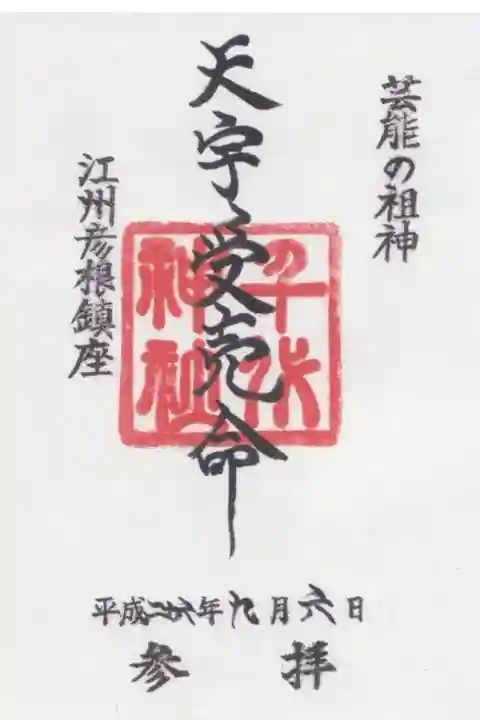 芸能の祖神
天宇受売命
千代
神社
江州彦根鎮座
平成二十六年九月六日
参拝